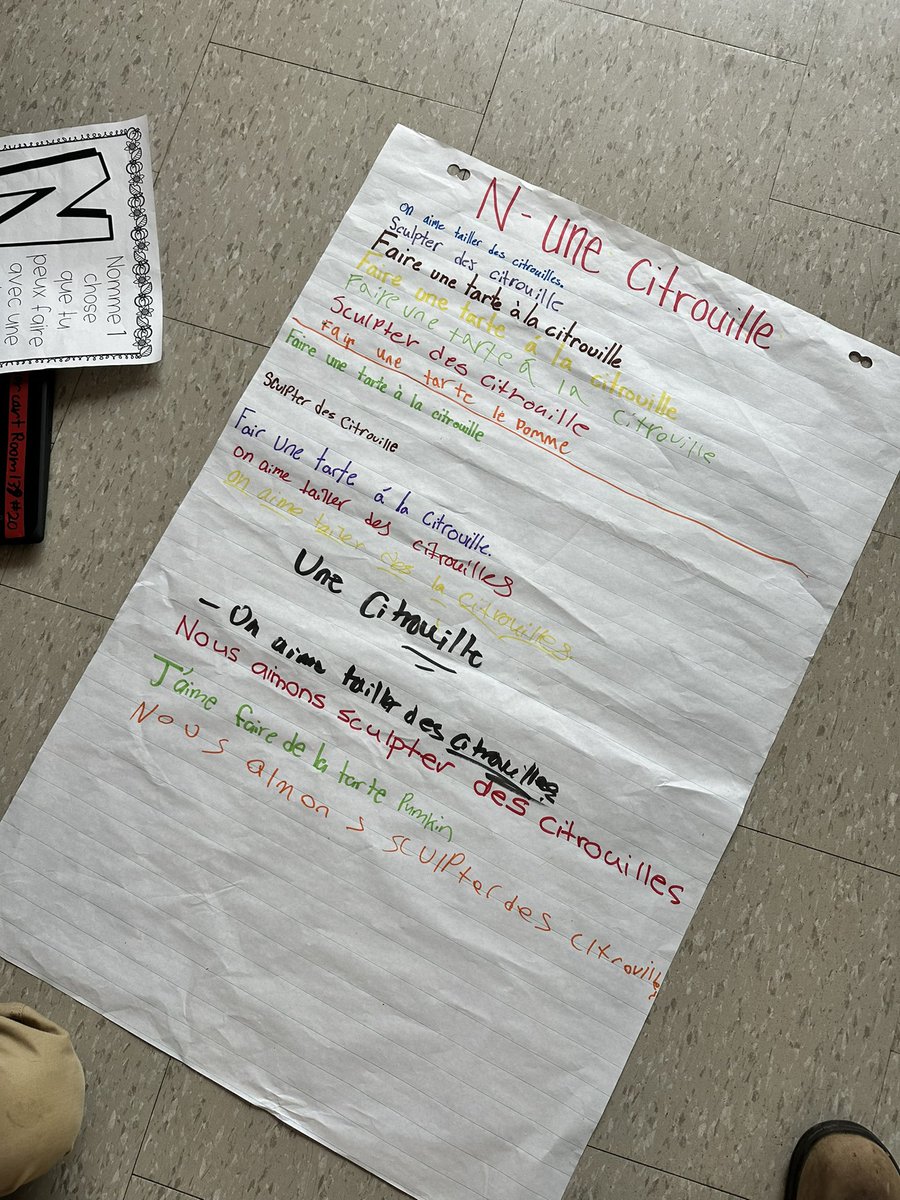 N - une Citrouille
on aime tailler des citrouilles.
Sculpter des citrouille
Faire une tarte à la citrouille
Faire une tarte á la citrouille
Faire une tarte à la citrouille
Sculpter des citrouille
Fair une tarte le pomme
Faire une tarte à la citrouille
Sculpter des Citrouille
Fair une tarte á la citrouille.
on aime tailler des citrouilles
on aime tailler des la citrouilles
Une Citrouille
- On aime tailler des citrouilles
Nous aimons sculpter des citrouilles
J'aime faire de la tarte Pumkin
Nous
aimons sculpter des citrouill
N
Nomme 1
chose
que tu
peux faire
avec une
cart Room 139 #20